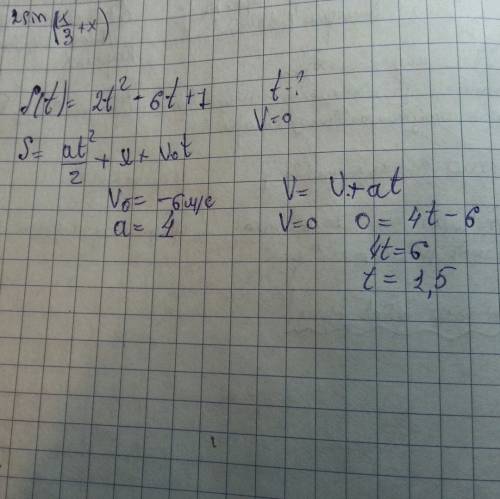 2sin(x/3+x)
S(t)= 2t² - 6t + 1
t-?
V=0
S= at²/2 + x + V₀t
V₀= -6м/с
a= 4
V= V₀+at
V=0 0= 4t-6
4t=6
t= 1,5